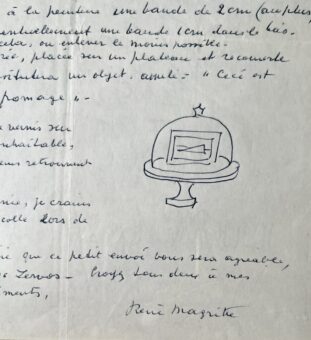 à la peinture une bande de 2 cm (au plus)
éventuellement une bande 1 cm dans le bas.
cela, ou enlever le moins possible.
placée sur un plateau et recouverte
un objet appelé - "Ceci est
fromage" -
vernis sur
souhaitable,
retrouvent
je crains
colle lors de
que ce petit envoi vous sera agréable,
Zervos - Croyez tous deux à mes
René Magritte